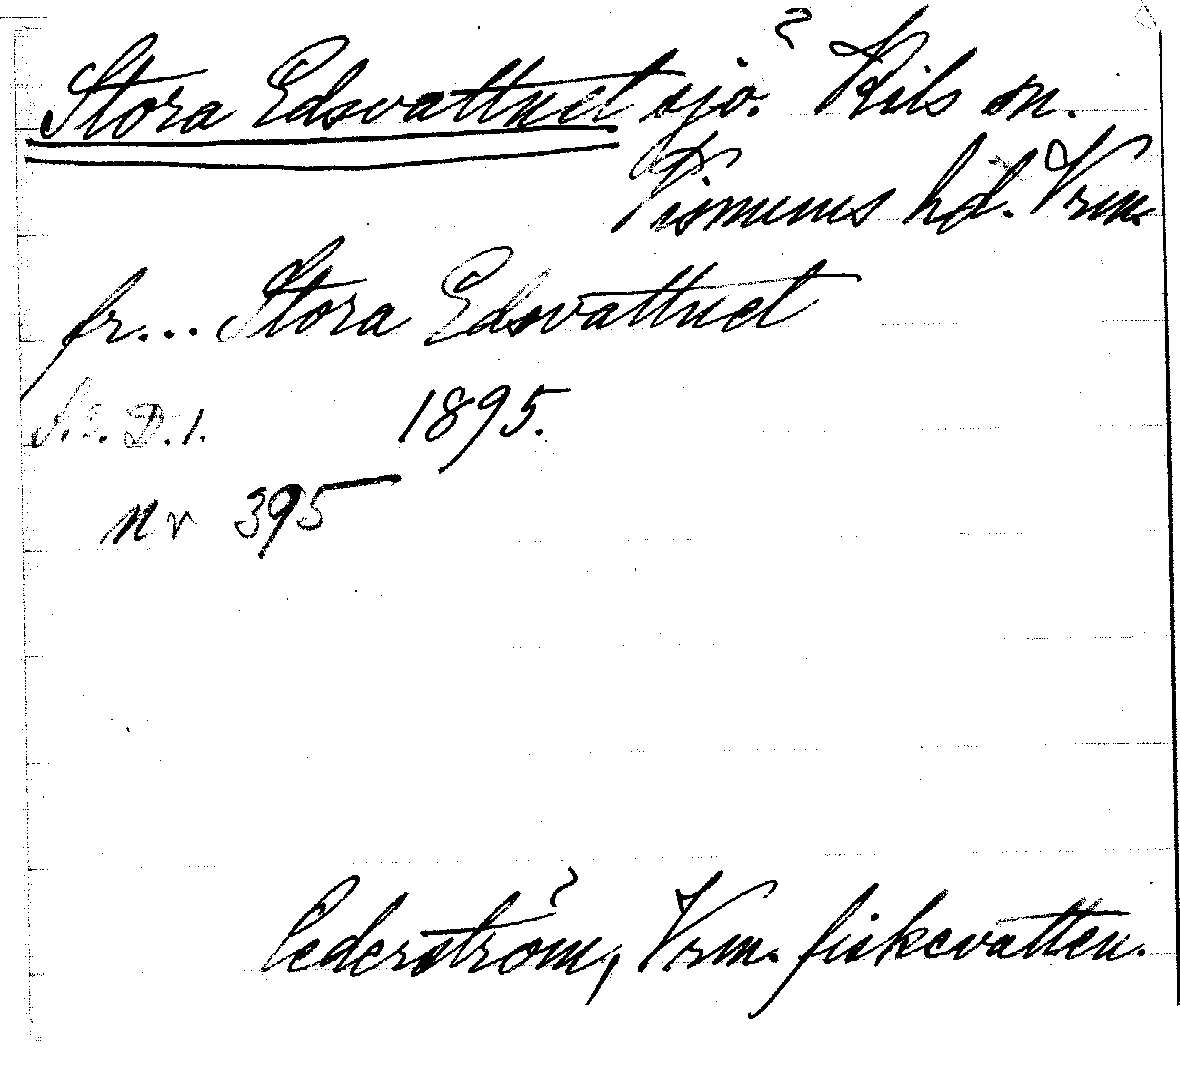 Stora Edsvattnet sjö? Kils sn.
Visnums hd. Vrm.
fr... Stora Edsvattnet
1895.
nr 395
Cederström, Vrm. fiskevatten.